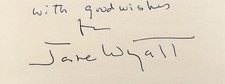 with good wishes
from
Jane Wyatt